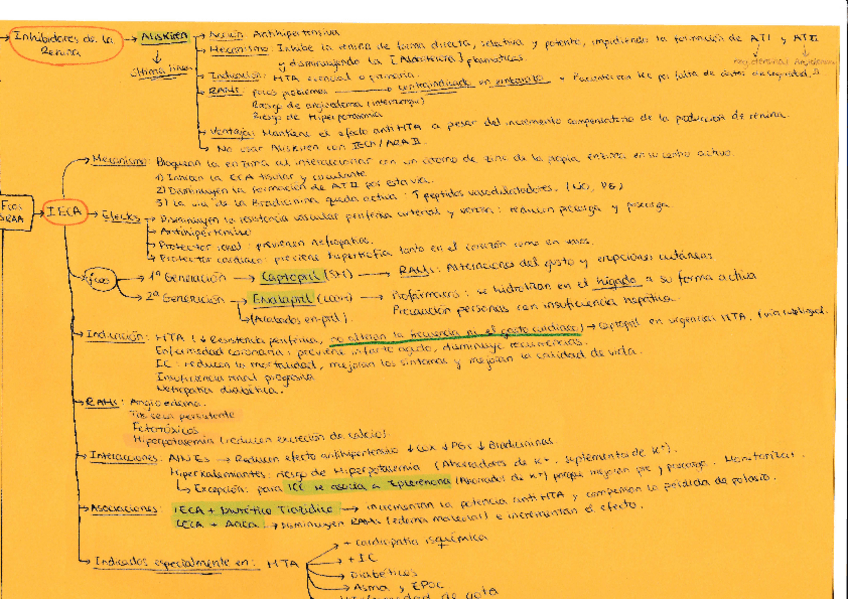 Inhibidores de la Renina → Aliskiren → Acción: Antihipertensiva
Mecanismo: Inhibe la renina de forma directa, selectiva y potente, impidiendo la formación de ATI y ATII
y disminuyendo la [Aldosterona] plasmáticas.
angiotensina I angiotensina
última línea
Indicación: HTA esencial o primaria.
RAMs: pocos problemas → contraindicado en embarazo
Riesgo de angioedema
Riesgo de Hiperpotasemia
Ventajas: Mantiene el efecto anti HTA a pesar del incremento compensatorio de la producción de renina.
No usar Aliskiren con IECA / ARA II.
Mecanismo: Bloquean la enzima al interaccionar con un átomo de zinc de la propia enzima en su centro activo.
1) Inhiben la ECA tisular y circulante
2) Disminuyen la formación de ATII por esta vía.
3) La vía de la Bradicinina queda activa: ↑ peptidos vasodilatadores.
IECA
Efectos → Disminuyen la resistencia vascular periférica arterial y venosa: reducen precarga y poscarga
Antihipertensivo
Protector renal: previenen nefropatías.
Protector cardiaco: previene hipertrofia tanto en el corazón como en vasos.
1ª Generación → Captopril (SH) → RAMs: Alteraciones del gusto y erupciones cutáneas
2ª Generación → Enalapril (COOH) → Profármacos: se hidrolizan en el hígado a su forma activa
(Acabados en -pril). Precaución personas con insuficiencia hepática.
Indicación: HTA (↓ Resistencia periférica, no alteran la frecuencia ni el gasto cardiaco) → Captopril en urgencias HTA. (vía sublingual.
Enfermedad coronaria: previene infarto agudo, disminuye recurrencias.
IC: reducen la mortalidad, mejoran los síntomas y mejoran la calidad de vida.
Insuficiencia renal progresiva
Nefropatía diabética.
RAMs: Angioedema.
Tos seca persistente
Fetotóxicos
Hiperpotasemia (reducen excreción de
Interacciones: AINEs → Reducen efecto antihipertensivo ↓ COX ↓ PGs ↓ Bradicininas.
Hiperkalemiantes: riesgo de Hiperpotasemia (Ahorradores de K+, suplementos de K+).
Excepción: para ICC se asocia a Eplerenona (Ahorrador de K+) porque mejoran pre y poscarga. Monitorizar.
Asociaciones: IECA + Diurético Tiazídico → incrementan la potencia anti HTA y compensan la pérdida de potasio.
IECA + Antca: → Disminuyen RAMs (edema maleolar) e incrementan el efecto.
Indicados especialmente en: HTA
+ cardiopatía isquémica
+ IC
Diabéticos
Asma y EPOC
de gota